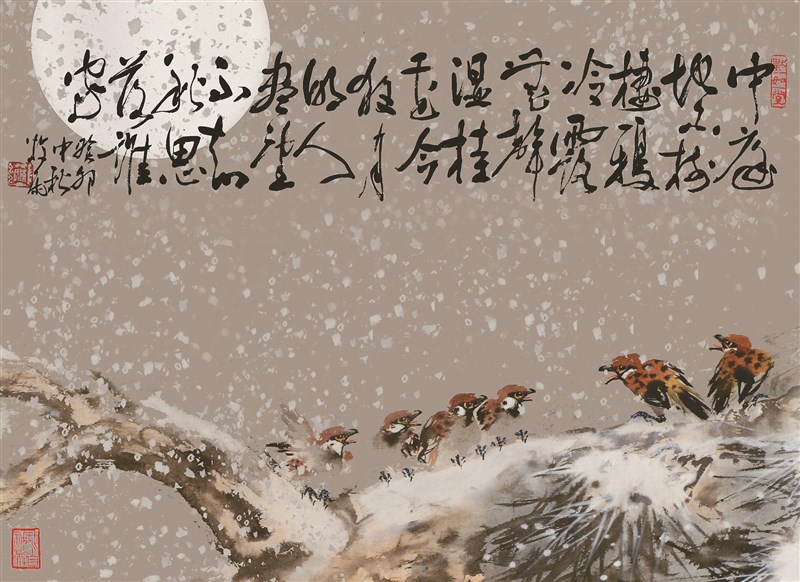 中庭
地白樹
棲鴉
冷露
無聲
湿桂
花今
夜月
明人
盡望
不知
秋思
落誰
家
癸卯
中秋